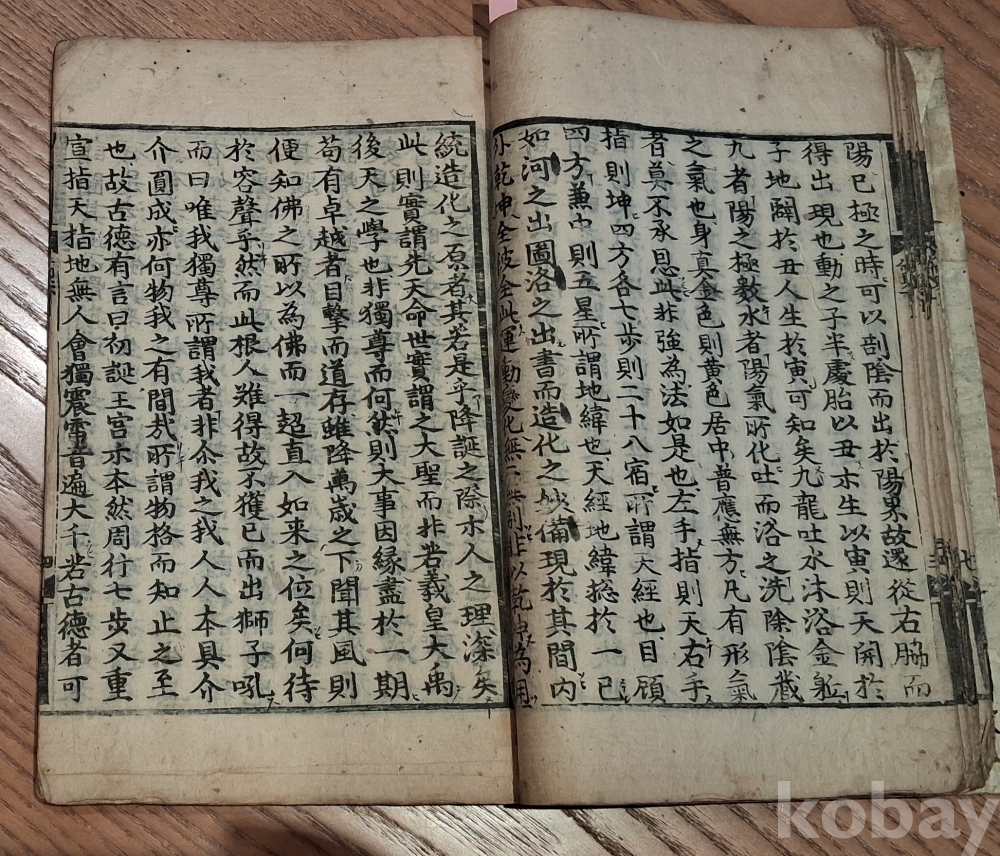 陽已極之時可以剖陰而出於陽果故還從右脇而
得出現也動之子半處胎以丑示生以寅則天開於
子地闢於丑人生於寅可知矣九龍吐水沐浴金軀
九者陽之極數水者陽氣所化吐而浴之洗除陰濺
之氣也身真金色則黃色居中普應無方凡有形氣
者莫不承恩此非強為法如是也左手指則天右手
指則坤四方各七步則二十八宿所謂天經也目顧
四方兼中則五星所謂地緯也天經地緯摠於一己
如河之出圖洛之出書而造化之妙備現於其間內
外乾坤全彼全此運動變化無 非以乾 為
統造化之原者其若是乎降誕之除示人之理深矣
此則實謂先天命世實謂之大聖而非若羲皇大禹
後天之學也非獨尊而何然則大事因緣盡於一期
苟有卓越者目擊而道存雖降萬歲之下聞其風則
便知佛之所以為佛而一超直入如来之位矣何待
於容聲乎然而此根人難得故不獲已而出獅子吼
而曰唯我獨尊所謂我者非尒我之我人人本具介
介圓成亦何物我之有間㢤所謂物格而知止之至
也故古德有言曰初誕王宮示本然周行七步又重
宣指天指地無人會獨震雷音遍大千若古德者可
kobay